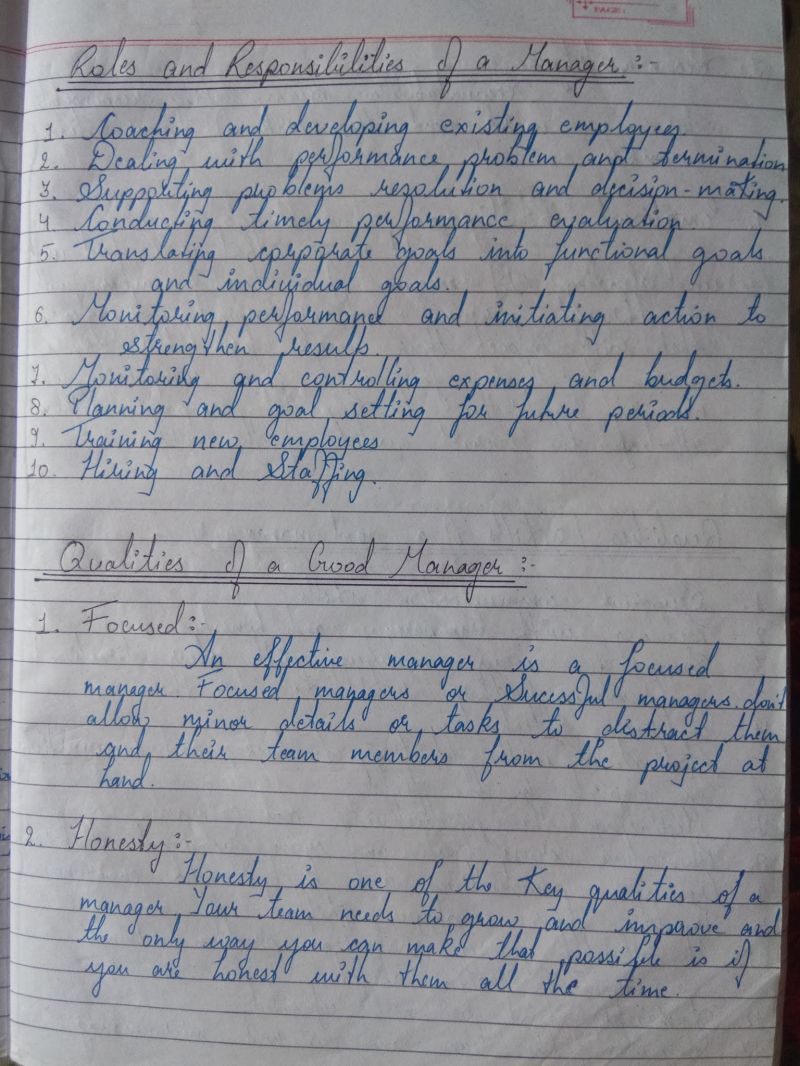 PAGE:
Roles and Responsibilities of a Manager:-
1. Coaching and developing existing employees.
2. Dealing with performance problem and termination
3. Supporting problems resolution and decision-making.
4. Conducting timely performance evaluation.
5. Translating corporate goals into functional goals
and individual goals.
6. Monitoring performance and initiating action to
strengthen results.
7. Monitoring and controlling expenses and budgets.
8. Planning and goal setting for future periods.
9. Training new employees
10. Hiring and Staffing.
Qualities of a Good Manager:-
1. Focused:-
An effective manager is a focused
manager. Focused managers or Sucessful managers don't
allow minor details or tasks to distract them
and their team members from the project at
hand.
2. Honesty:-
Honesty is one of the Key qualities of a
manager. Your team needs to grow and improve and
the only way you can make that possible is if
you are honest with them all the time.